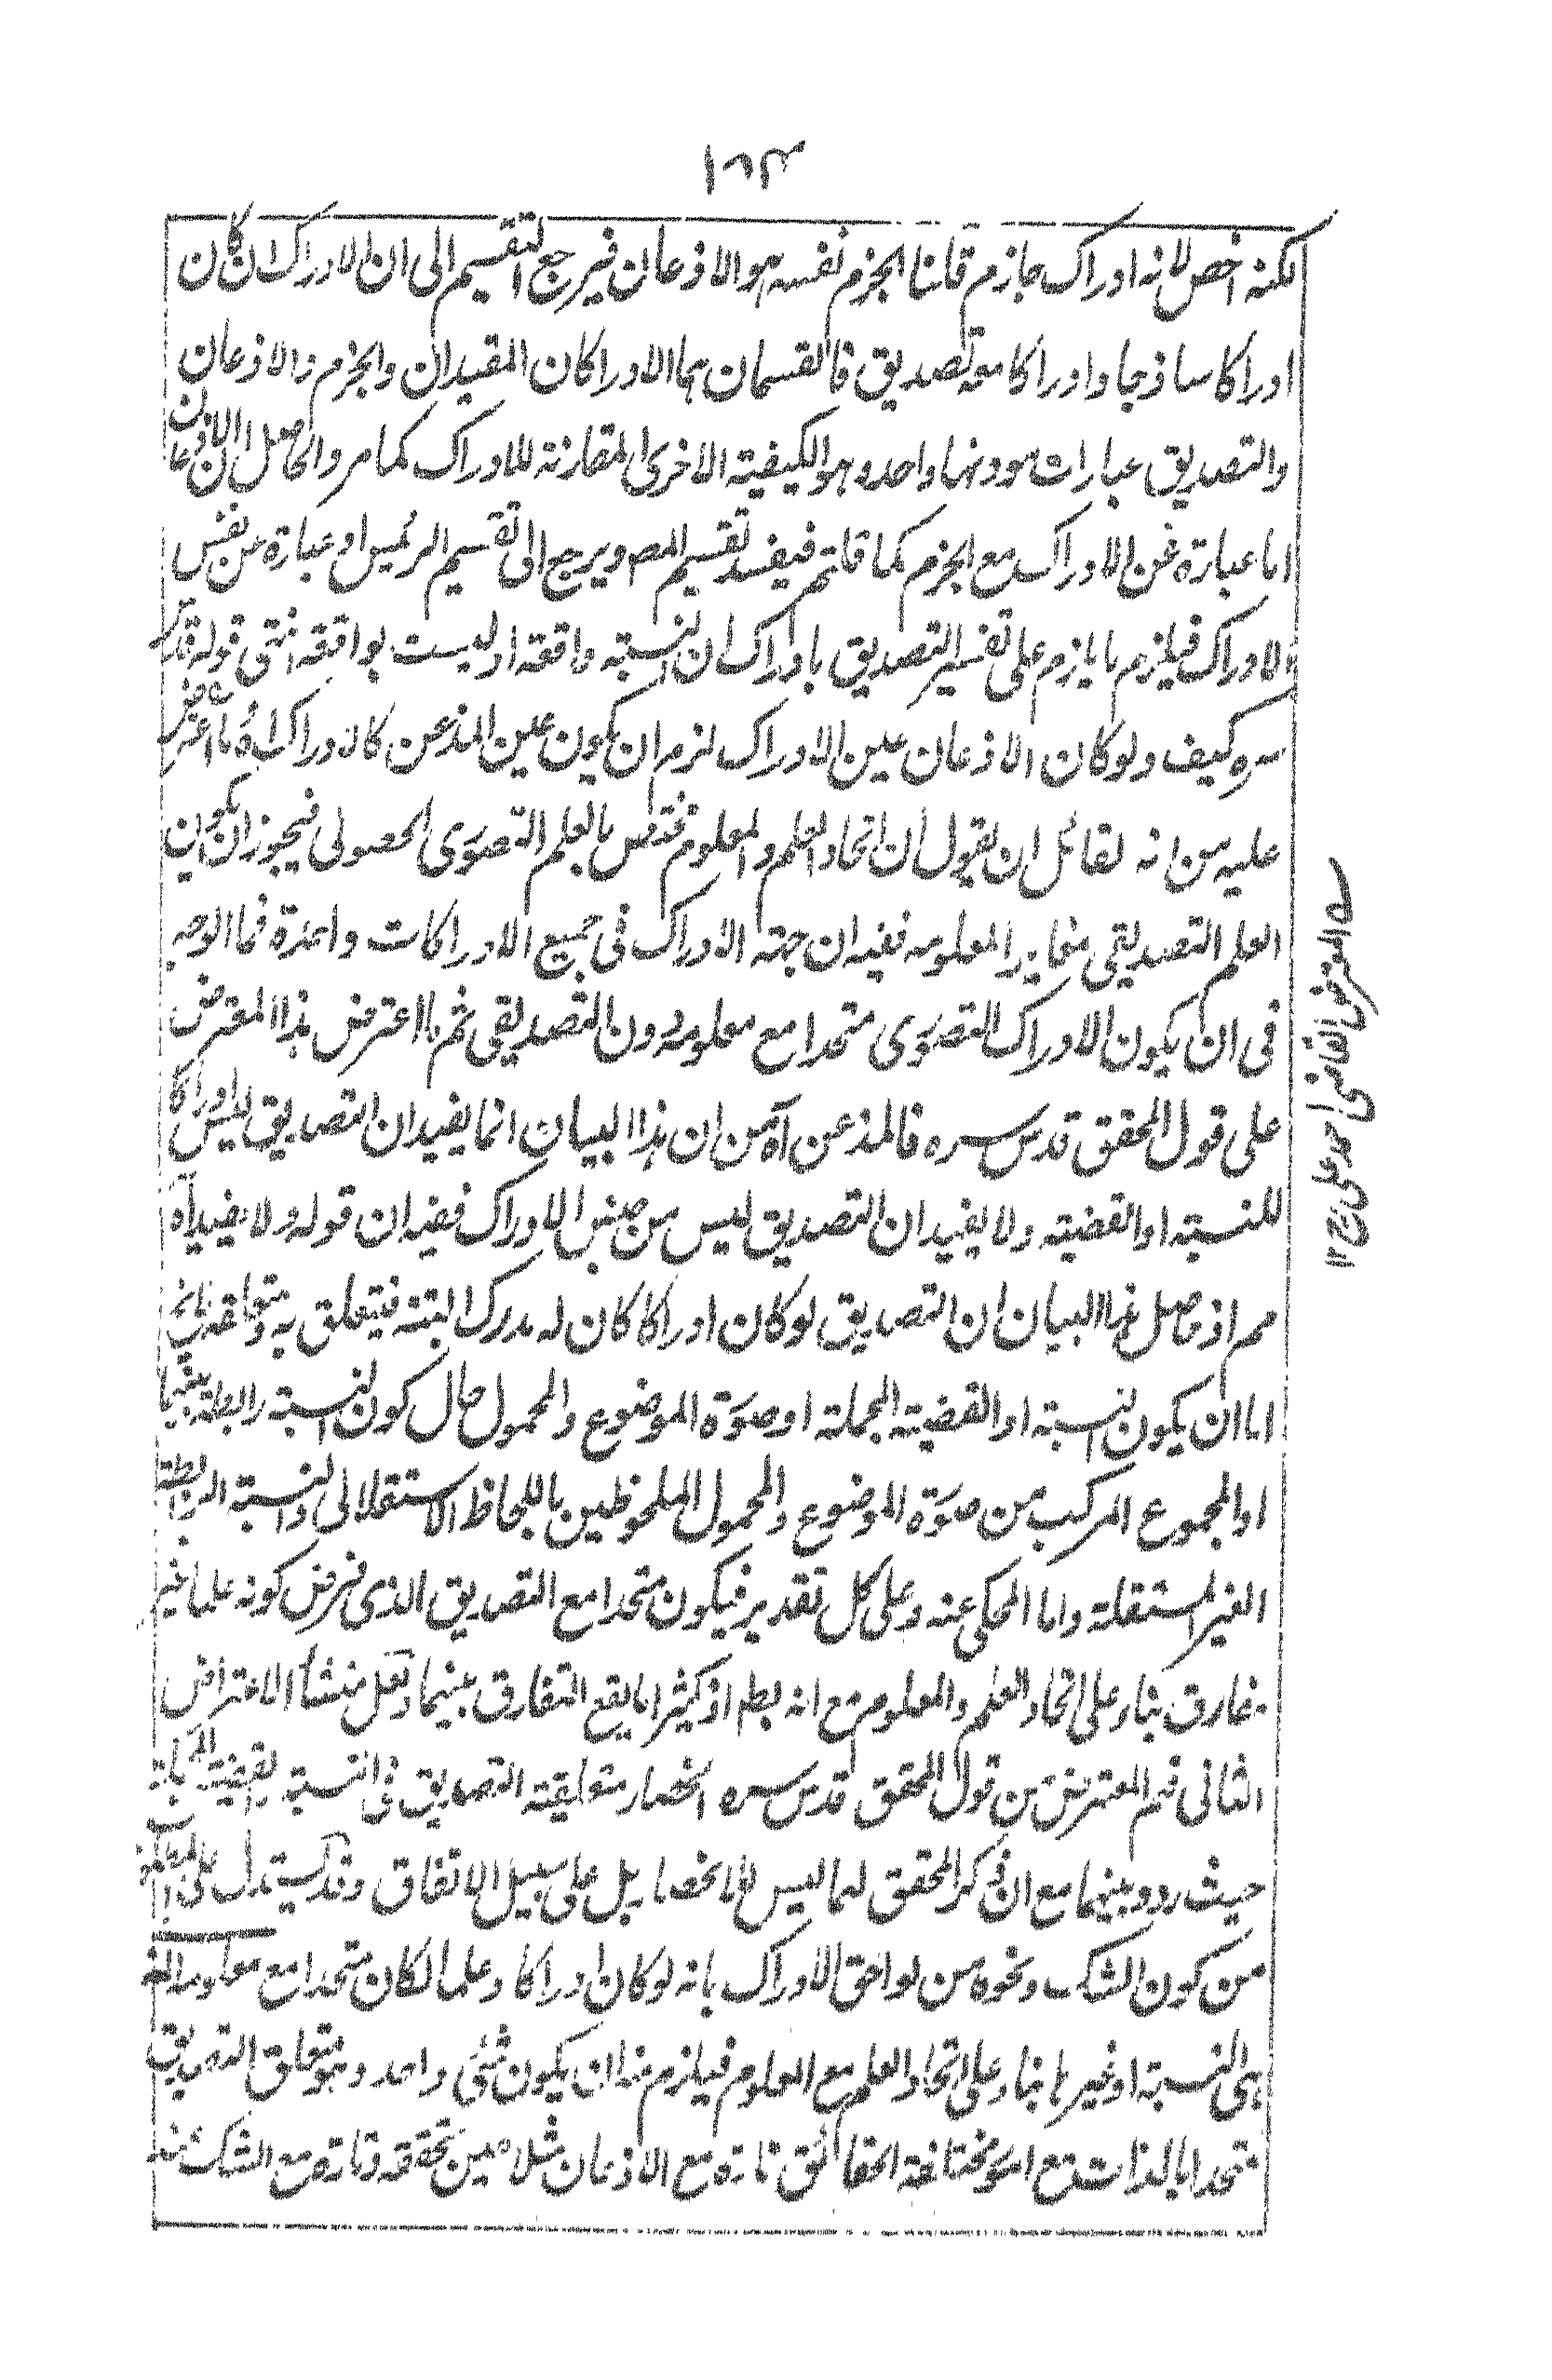 ١٦٣
لكنه اخص لانه ادراك جازم قلنا الجزم نفسه هو الاذعان فيرجع التقسيم الى ان الادراك ان كان
ادراكا ساذجا وادراكا معه تصديق فالقسمان هما الادراكان المقيدان والجزم والاذعان
والتصديق عبارات مودنها واحد وهو الكيفية الاخرى المقارنة للادراك كما مر والحاصل ان الاذعان
اما عبارة عن الادراك مع الجزم كما قلتم فيفسد تقسيم المص ويرجع الى تقسيم الرئيس او عبارة عن نفس
الادراك فيلزم ما يلزم على تفسير التصديق بادراك ان النسبة واقعة او ليست بواقعة انتهى قوله قدس
سره كيف ولو كان الاذعان عين الادراك لزم ان يكون عين المذعن كالادراك اه ما اعترض
عليه من انه لقائل ان يقول ان اتحاد العلم والمعلوم مختص بالعلم التصورى الحصولى فيجوز ان يكون
العلم التصديقى مغايرا لمعلومه ففيه ان جهة الادراك فى جميع الادراكات واحدة فما الوجه
فى ان يكون الادراك التصورى متحدا مع معلومه دون التصديقى ثم ما اعترض هذا المعترض
على قول المحقق قدس سره فالمذعن آه من ان هذا البيان انما يفيد ان التصديق ليس ادراكا
للنسبة او القضية ولا يفيد ان التصديق ليس من جنس الادراك ففيه ان قوله ولا يفيد آه
مم اذ حاصل هذا البيان ان التصديق لو كان ادراكا كان له مدرك البتة فيتعلق به ومتعلقه
اما ان يكون النسبة او القضية المجملة او صورة الموضوع والمحمول حال كون النسبة رابطة بينهما
او المجموع المركب من صورة الموضوع والمحمول الملحوظين باللحاظ الاستقلالى والنسبة الرابطة
الغير المستقلة واما المحكى عنه وعلى كل تقدير فيكون متحدا مع التصديق الذى فرض كونه علما غير
مفارق بناء على اتحاد العلم والمعلوم مع انه بط اذ كثيرا ما يقع التفارق بينهما ولعل منشأ الاعتراض
الثانى فهم المعترض من قول المحقق قدس سره انحصار متعلقية التصديق فى النسبة
حيث ردد بينهما مع ان ذكر المحقق لهما ليس للانحصار بل على سبيل الاتفاق وقد يستدل على
من كون الشك ونحوه من لواحق الادراك بانه لو كان ادراكا وعلما لكان متحدا مع معلومه
هى النسبة او غيرها بناء على اتحاد العلم مع المعلوم فيلزم منه ان يكون شئ واحد وهو متعلق التصديق
متحدا بالذات مع امور مختلفة الحقائق تارة مع الاذعان مثلا حين تحققه وتارة مع الشك عند
المعترض القاضى احمد على ١٢